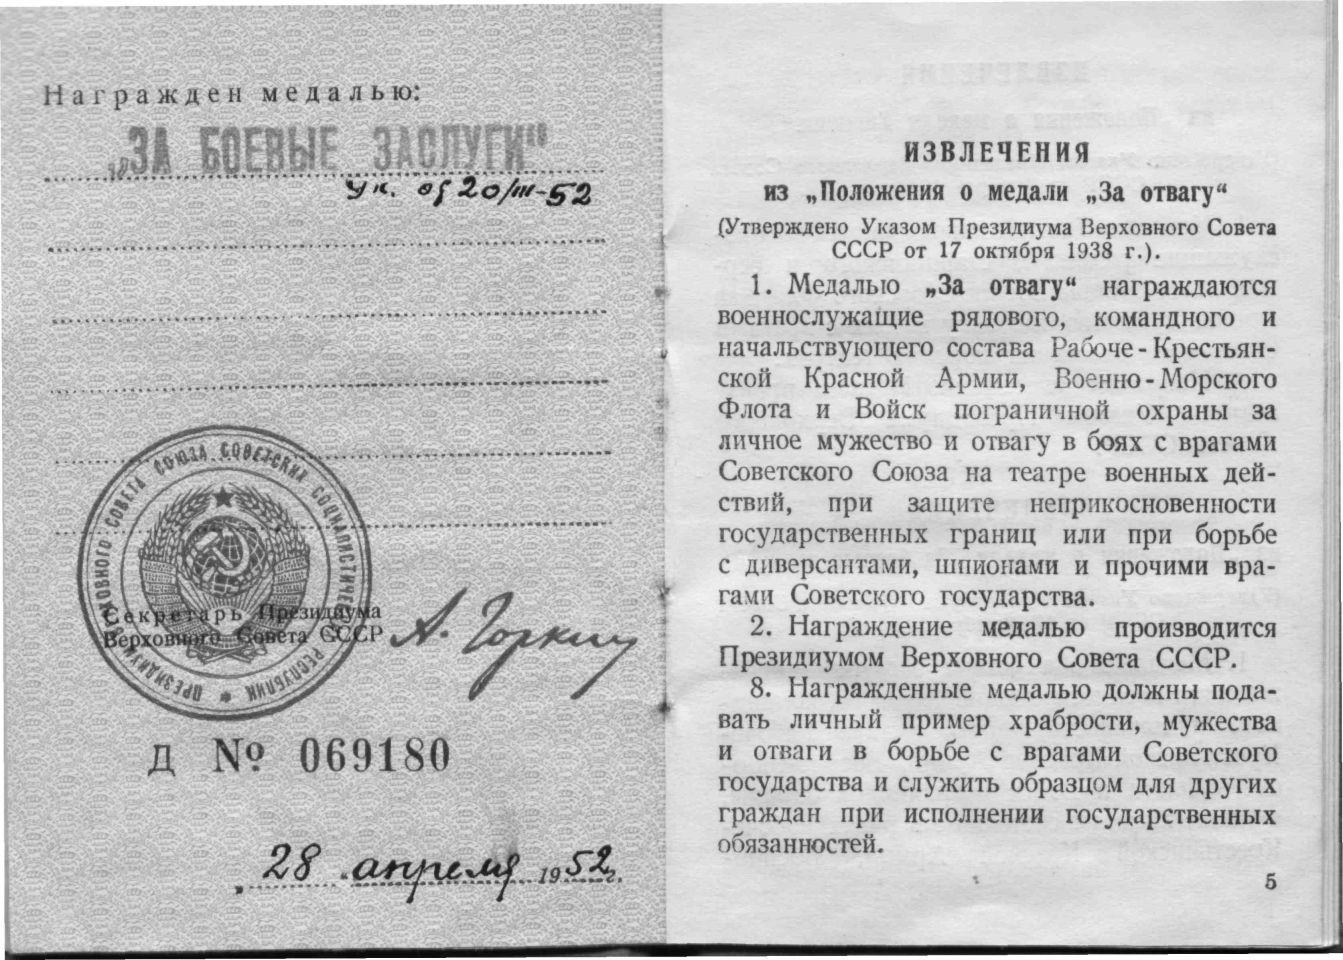 Награжден медалью:
„ЗА БОЕВЫЕ ЗАСЛУГИ“
Ук. от 20/III-52
ПРЕЗИДИУМ ВЕРХОВНОГО СОВЕТА СОЮЗА СОВЕТСКИХ СОЦИАЛИСТИЧЕСКИХ РЕСПУБЛИК
Секретарь Президиума
Верховного Совета СССР А. Горкин
Д № 069180
„28“ апреля 1952г.
ИЗВЛЕЧЕНИЯ
из „Положения о медали „За отвагу“
(Утверждено Указом Президиума Верховного Совета
СССР от 17 октября 1938 г.).
1. Медалью „За отвагу“ награждаются
военнослужащие рядового, командного и
начальствующего состава Рабоче-Крестьян-
ской Красной Армии, Военно-Морского
Флота и Войск пограничной охраны за
личное мужество и отвагу в боях с врагами
Советского Союза на театре военных дей-
ствий, при защите неприкосновенности
государственных границ или при борьбе
с диверсантами, шпионами и прочими вра-
гами Советского государства.
2. Награждение медалью производится
Президиумом Верховного Совета СССР.
8. Награжденные медалью должны пода-
вать личный пример храбрости, мужества
и отваги в борьбе с врагами Советского
государства и служить образцом для других
граждан при исполнении государственных
обязанностей.
5